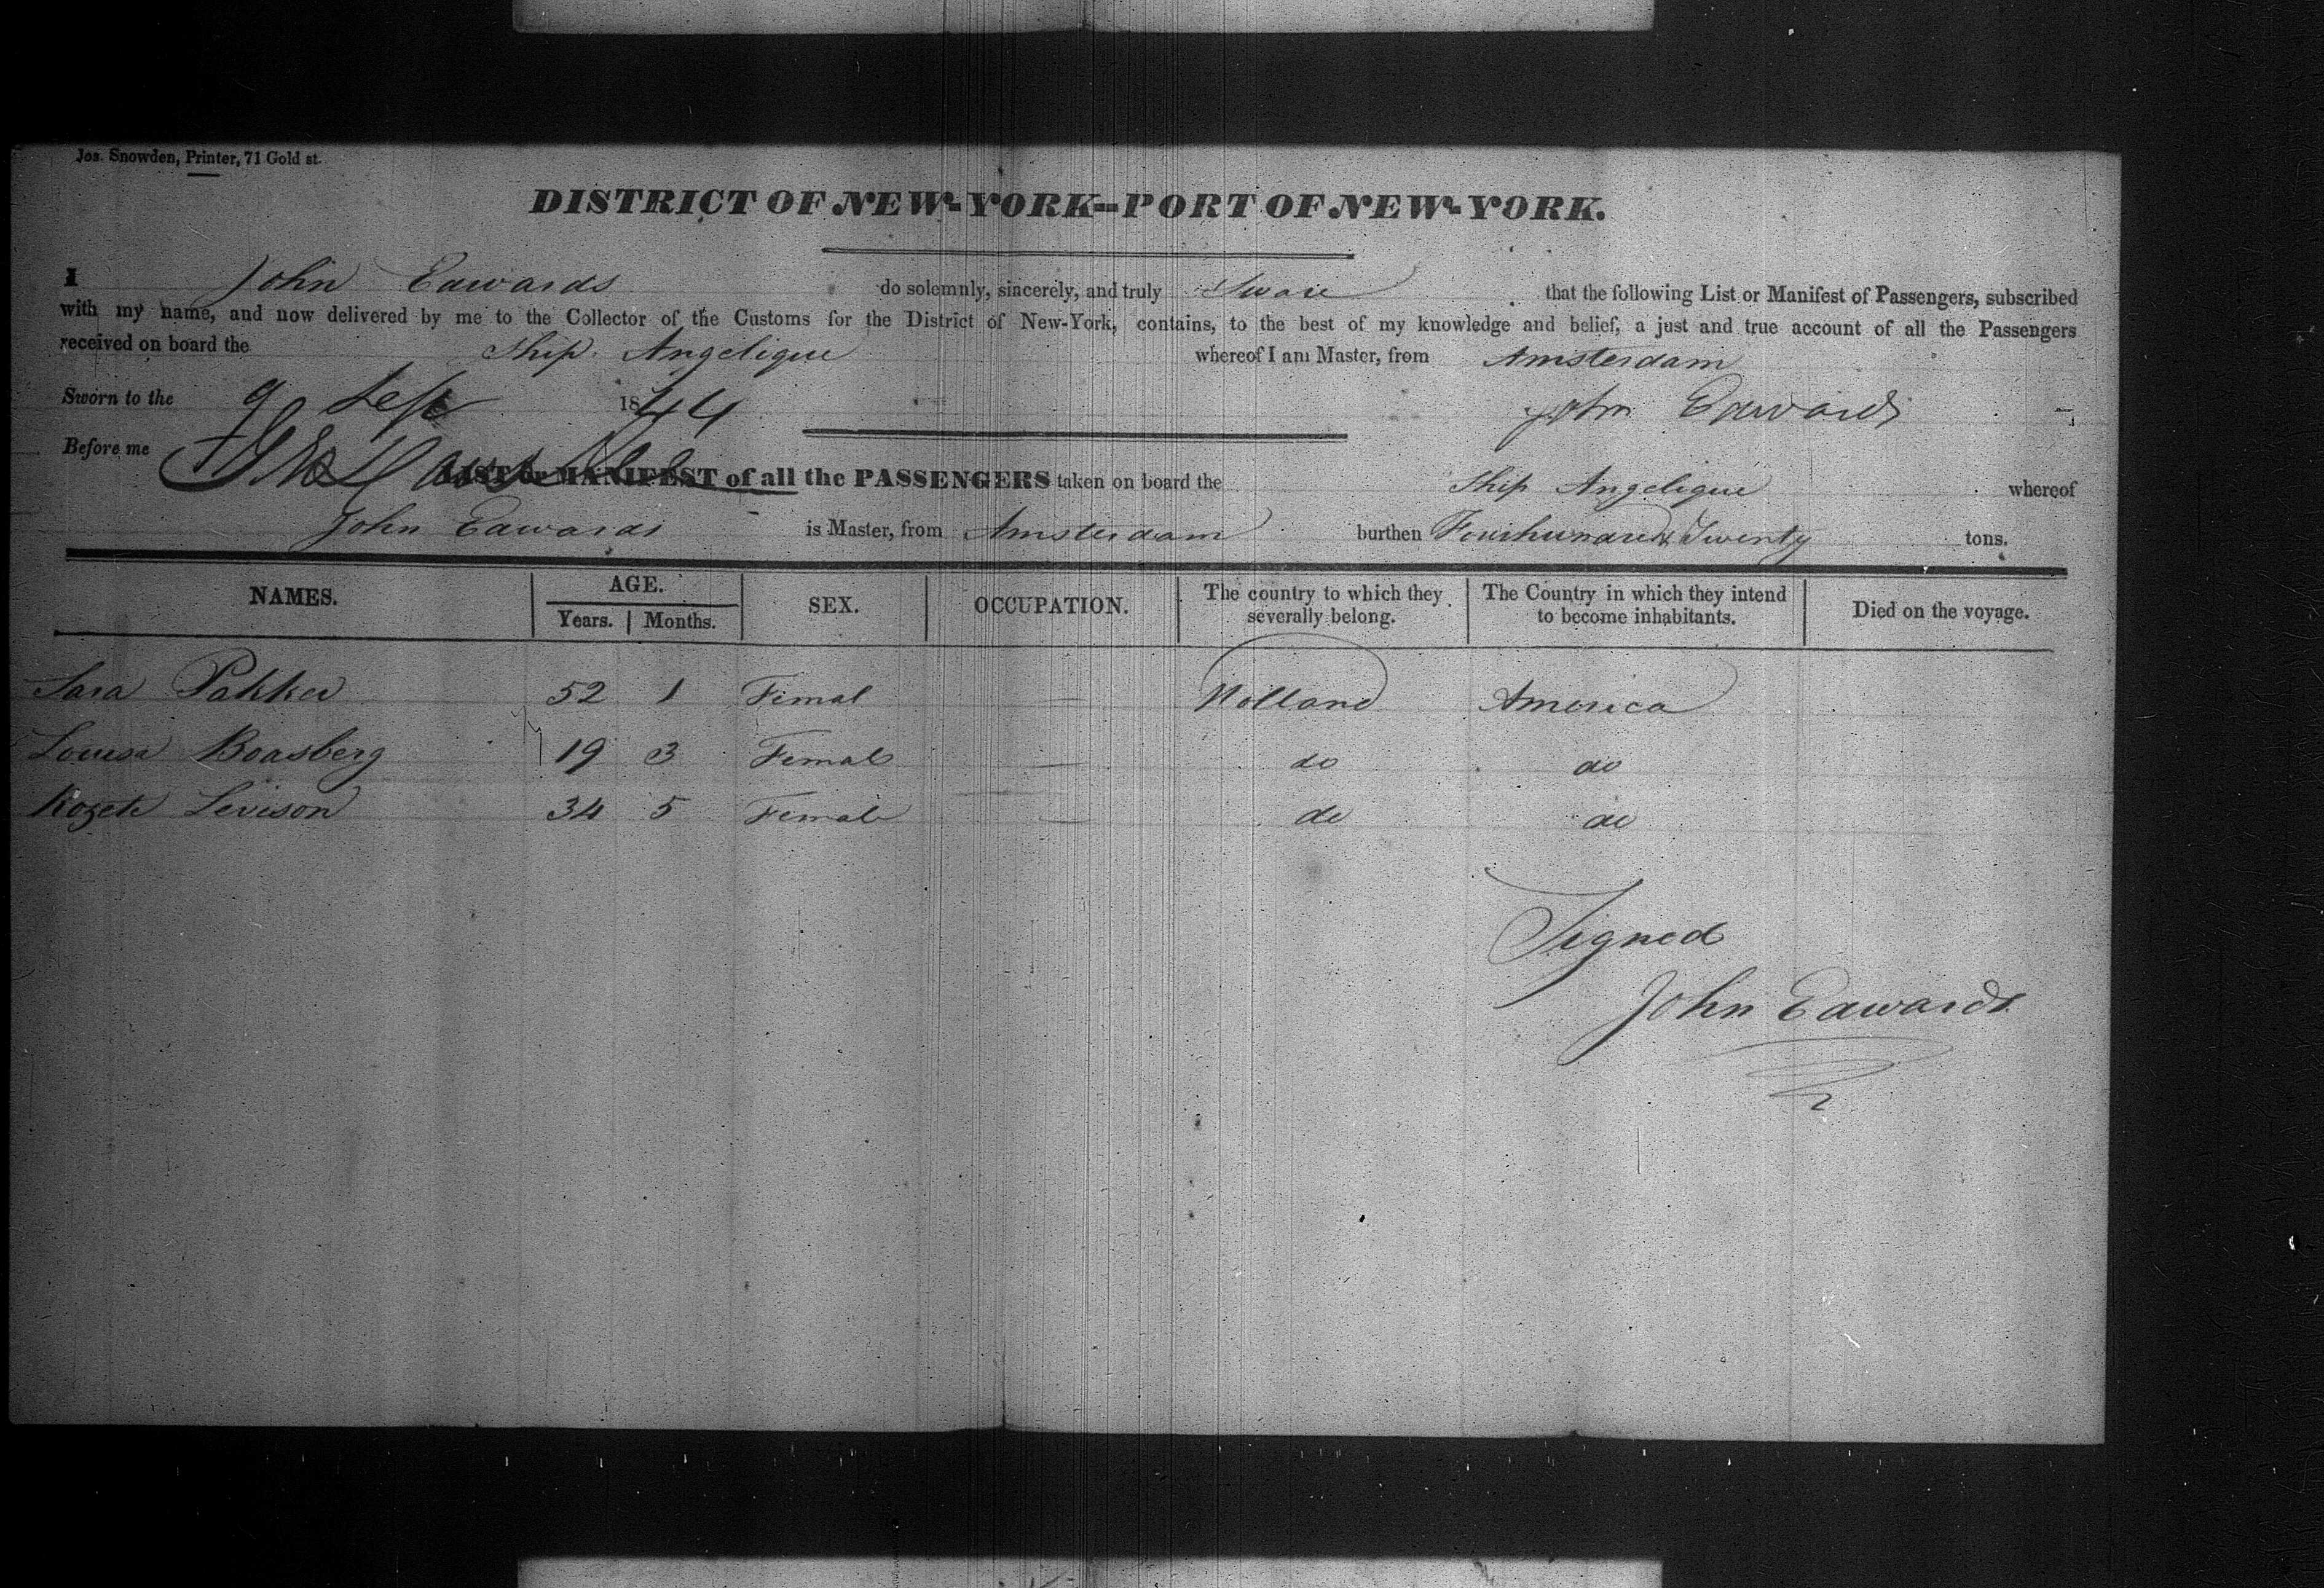 Jos. Snowden, Printer, 71 Gold st.
DISTRICT OF NEW-YORK--PORT OF NEW-YORK.
I John Edwards do solemnly, sincerely, and truly Sware that the following List or Manifest of Passengers, subscribed
with my name, and now delivered by me to the Collector of the Customs for the District of New-York, contains, to the best of my knowledge and belief, a just and true account of all the Passengers
received on board the Ship Angelique whereof I am Master, from Amsterdam
Sworn to the 9 Sept 1844 John Edwards
Before me
LIST or MANIFEST of all the PASSENGERS taken on board the Ship Angelique whereof
John Edwards is Master, from Amsterdam burthen Fourhundred & Twenty tons.
NAMES. AGE. SEX. OCCUPATION. The country to which they severally belong. The Country in which they intend to become inhabitants. Died on the voyage.
Years. Months.
Sara Pakker 52 1 Fimal — Holland America
Louisa Boasberg 19 3 Female — do do
Rozete Levison 34 5 Female — do do
Signed
John Edwards